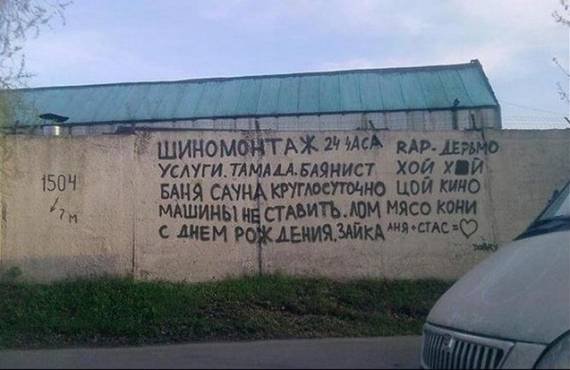 1504
7 м
ШИНОМОНТАЖ 24 ЧАСА RAP-ДЕРЬМО
УСЛУГИ. ТАМАДА. БАЯНИСТ ХОЙ ХОЙ
БАНЯ САУНА КРУГЛОСУТОЧНО ЦОЙ КИНО
МАШИНЫ НЕ СТАВИТЬ. ЛОМ МЯСО КОНИ
С ДНЕМ РОЖДЕНИЯ, ЗАЙКА АНЯ + СТАС = ♡